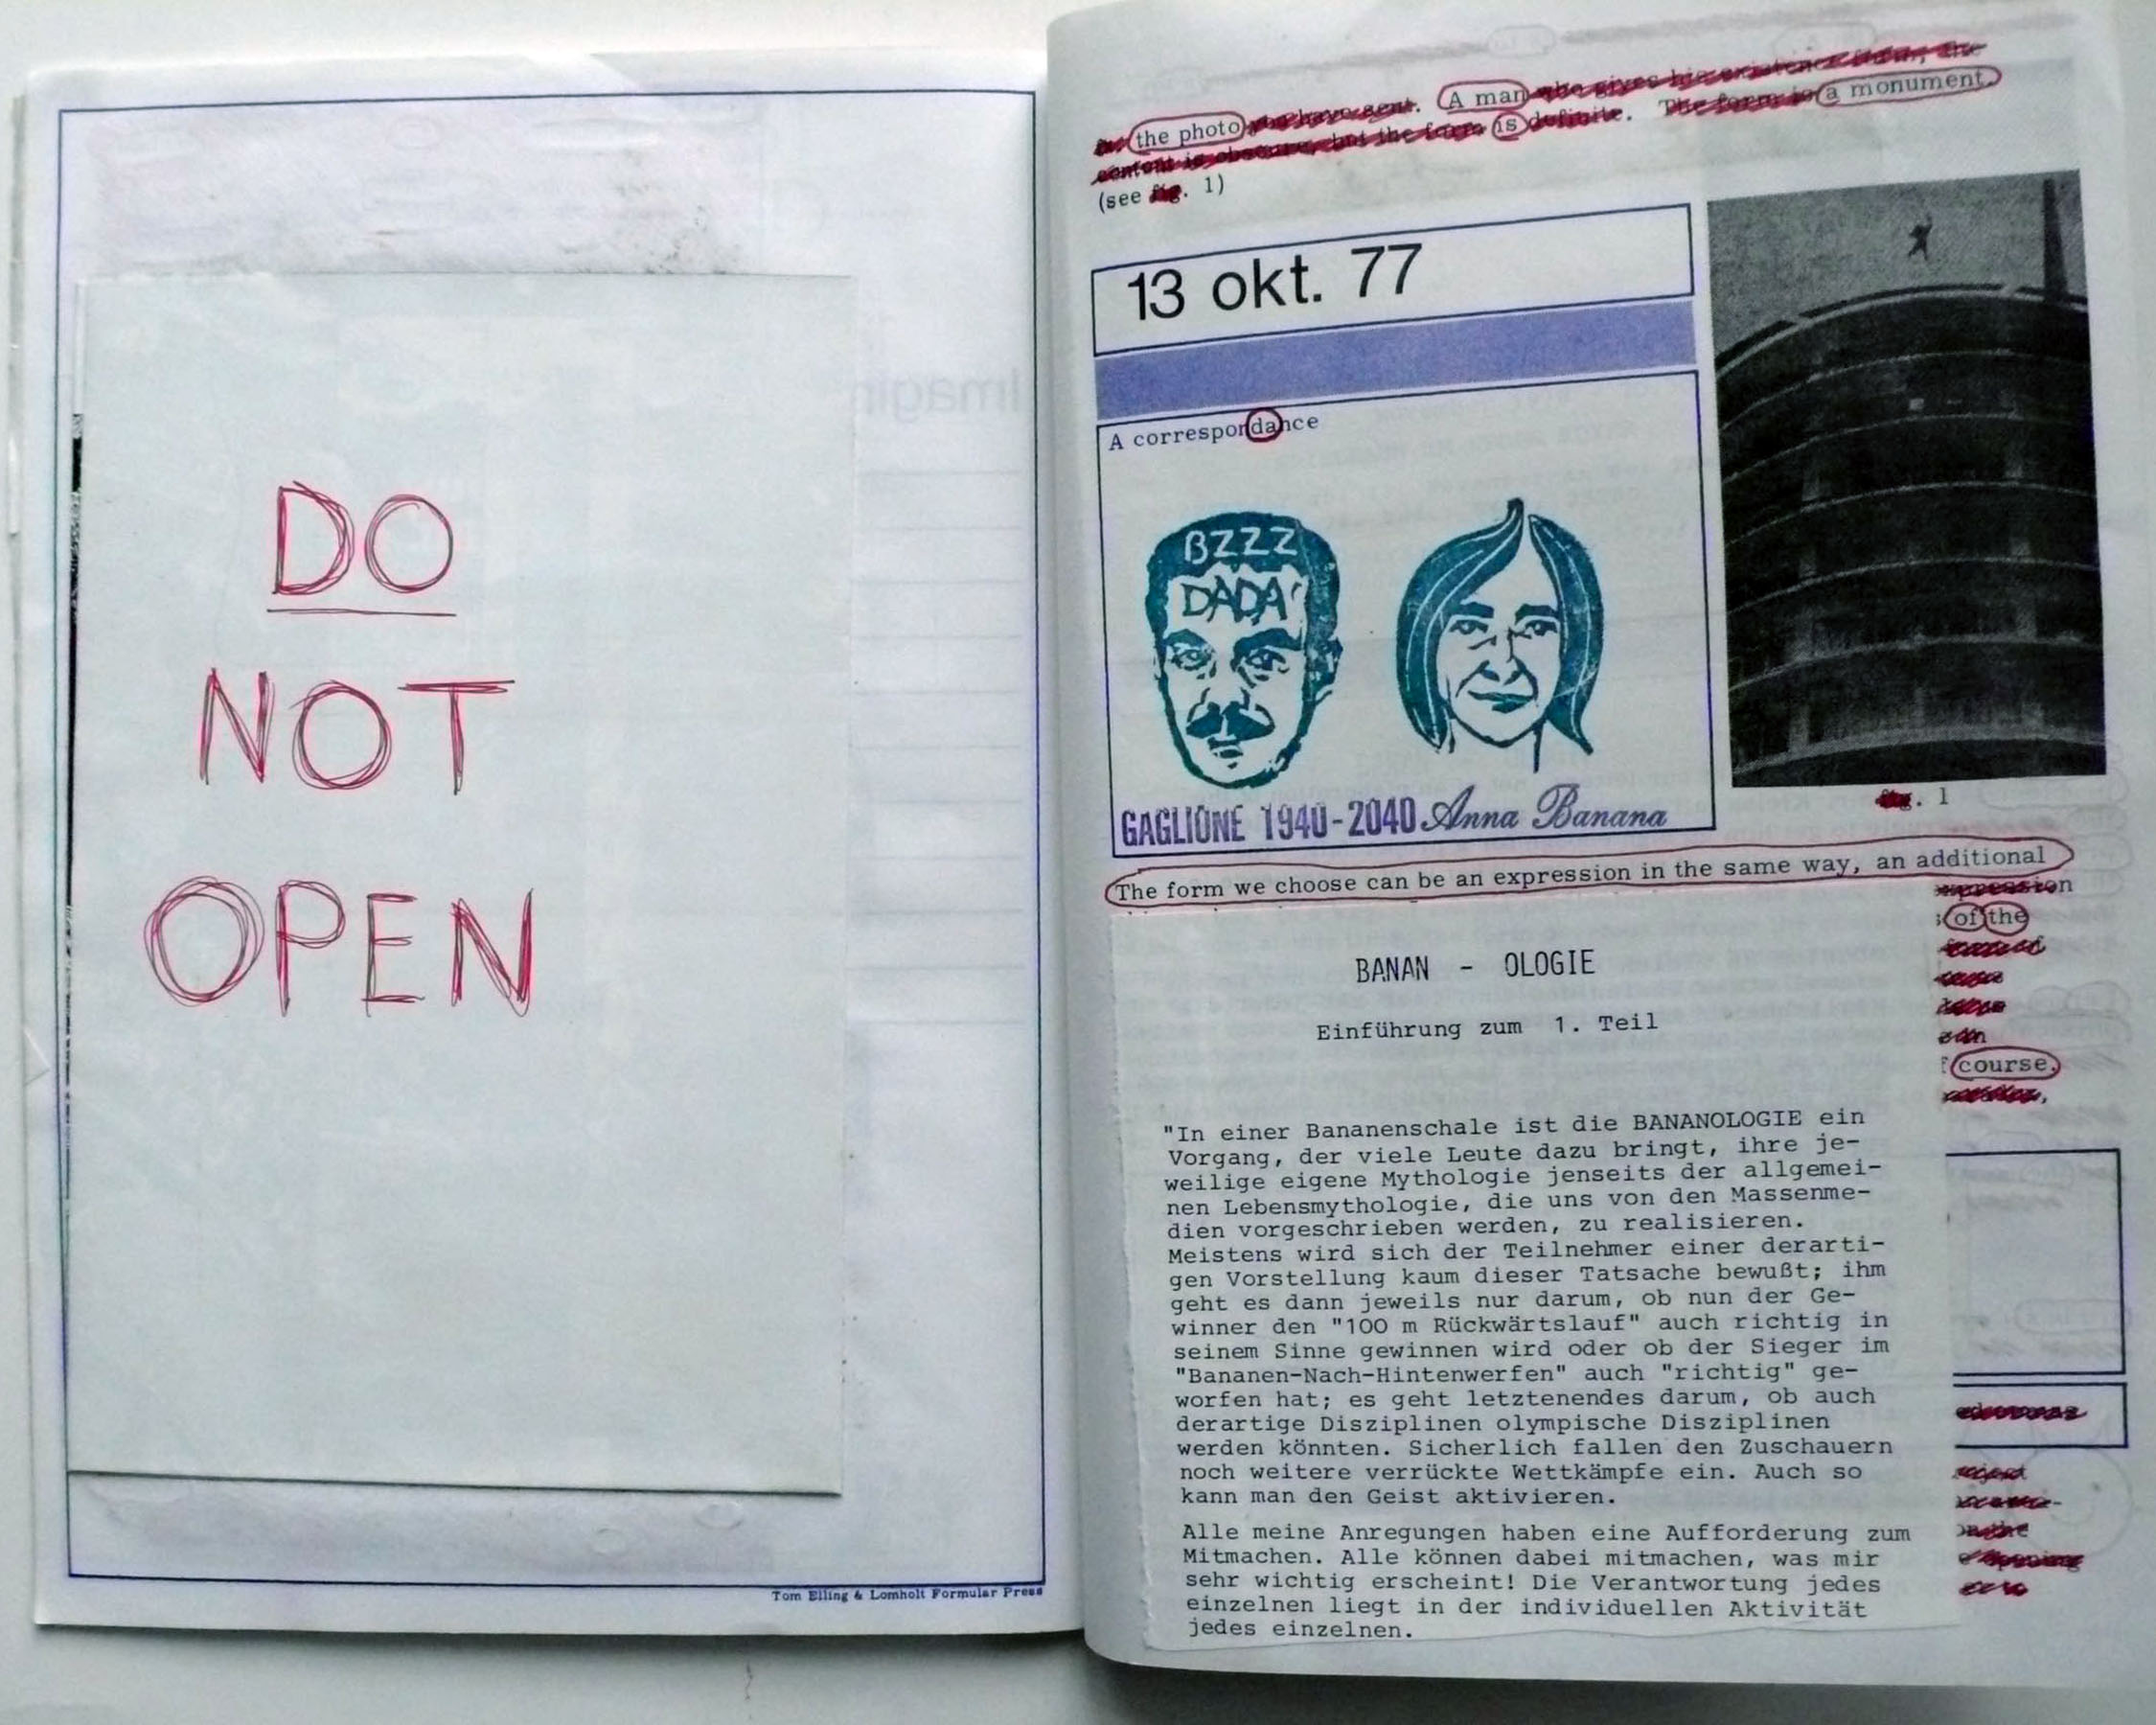 DO
NOT
OPEN
Tom Elling & Lomholt Formular Press
the photo you have sent. A man who gives his existence form, the
content is obscure, but the form is definite. The form is a monument.
(see fig. 1)
13 okt. 77
A correspondance
BZZZ
DADA
GAGLIONE 1940-2040 Anna Banana
fig. 1
The form we choose can be an expression in the same way, an additional
expression
of the
course.
BANAN - OLOGIE
Einführung zum 1. Teil
"In einer Bananenschale ist die BANANOLOGIE ein
Vorgang, der viele Leute dazu bringt, ihre je-
weilige eigene Mythologie jenseits der allgemei-
nen Lebensmythologie, die uns von den Massenme-
dien vorgeschrieben werden, zu realisieren.
Meistens wird sich der Teilnehmer einer derarti-
gen Vorstellung kaum dieser Tatsache bewußt; ihm
geht es dann jeweils nur darum, ob nun der Ge-
winner den "100 m Rückwärtslauf" auch richtig in
seinem Sinne gewinnen wird oder ob der Sieger im
"Bananen-Nach-Hintenwerfen" auch "richtig" ge-
worfen hat; es geht letztenendes darum, ob auch
derartige Disziplinen olympische Disziplinen
werden könnten. Sicherlich fallen den Zuschauern
noch weitere verrückte Wettkämpfe ein. Auch so
kann man den Geist aktivieren.
Alle meine Anregungen haben eine Aufforderung zum
Mitmachen. Alle können dabei mitmachen, was mir
sehr wichtig erscheint! Die Verantwortung jedes
einzelnen liegt in der individuellen Aktivität
jedes einzelnen.